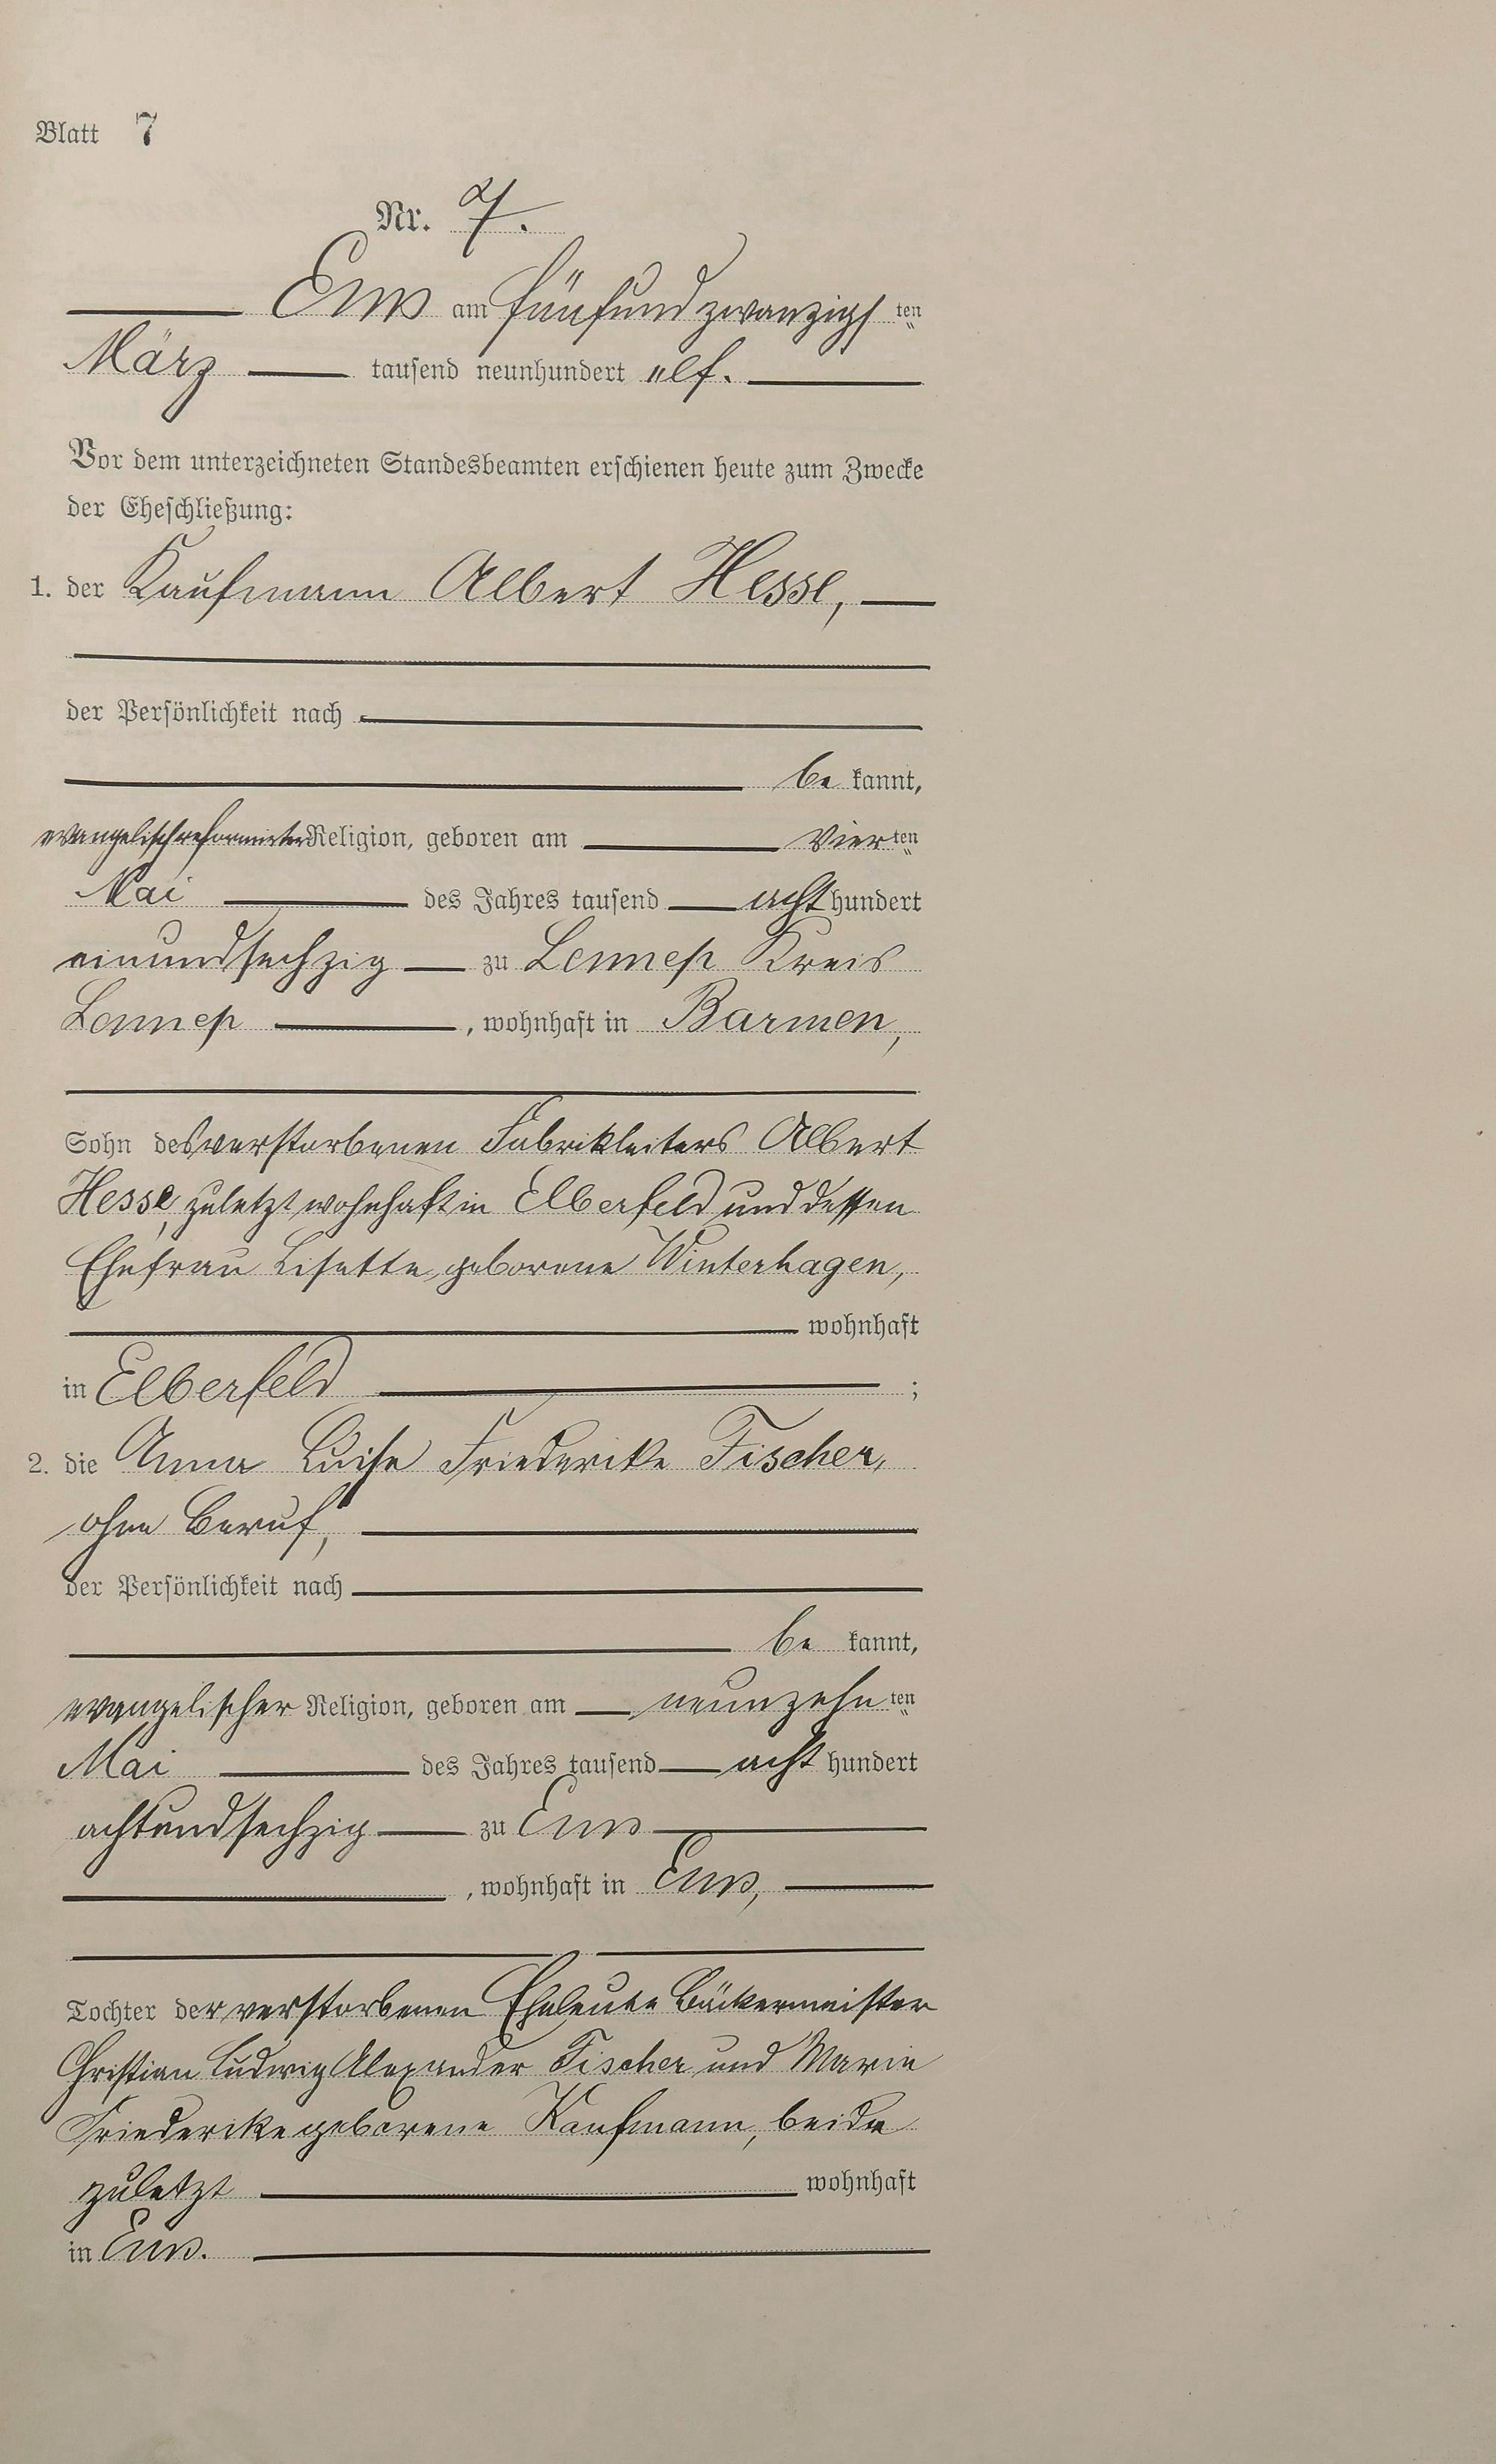 Blatt 7
Nr. 7.
Ems am fünfundzwanzigsten
März tausend neunhundert elf.
Vor dem unterzeichneten Standesbeamten erschienen heute zum Zwecke
der Eheschließung:
1. der Kaufmann Albert Hesse,
der Persönlichkeit nach
be kannt,
evangelischreformierter Religion, geboren am vierten
Mai des Jahres tausend acht hundert
einundsechzig zu Lennep Kreis
Lennep, wohnhaft in Barmen,
Sohn des verstorbenen Fabrikleiters Albert
Hesse, zuletzt wohnhaft in Elberfeld und dessen
Ehefrau Lisette, geborene Winterhagen,
wohnhaft
in Elberfeld ;
2. die Anna Luise Friederike Fischer,
ohne Beruf,
der Persönlichkeit nach
be kannt,
evangelischer Religion, geboren am neunzehnten
Mai des Jahres tausend acht hundert
achtundsechzig zu Ems
, wohnhaft in Ems,
Tochter der verstorbenen Eheleute Bäckermeister
Christian Ludwig Alexander Fischer und Marie
Friederike geborene Kaufmann, beide
zuletzt wohnhaft
in Ems.